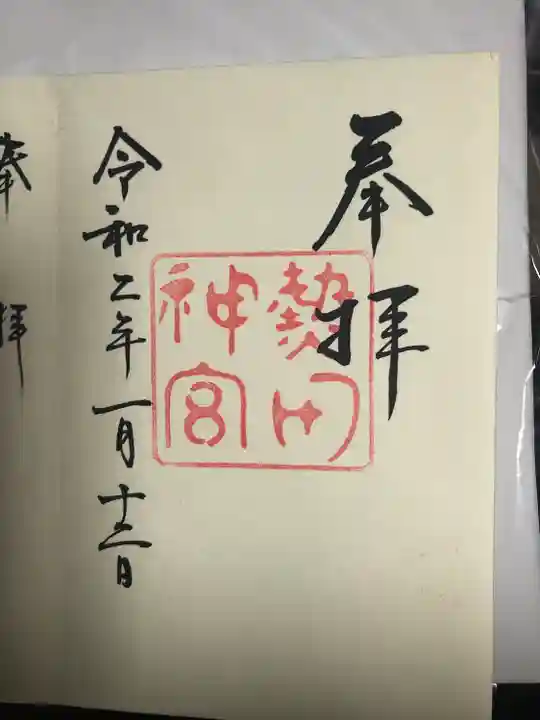 奉拝
熱田
神宮
令和二年一月十二日
奉拝